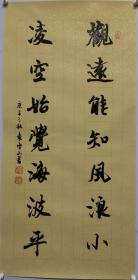 觀遠能知風浪小
凌空始覺海波平
庚子之秋